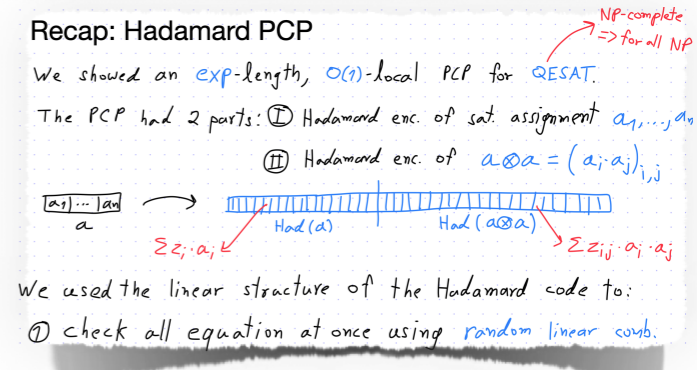 Recap: Hadamard PCP
NP-complete
=> for all NP
We showed an exp-length, O(1)-local PCP for QESAT.
The PCP had 2 parts: Ⓘ Hadamard enc. of sat. assignment a₁,...,aₙ
Ⓘⓘ Hadamard enc. of a⊗a = (aᵢ·aⱼ)ᵢ,ⱼ
a₁ ... aₙ
a
Had(a)
Had(a⊗a)
Σzᵢ·aᵢ
Σzᵢⱼ·aᵢ·aⱼ
We used the linear structure of the Hadamard code to:
① check all equation at once using random linear comb.